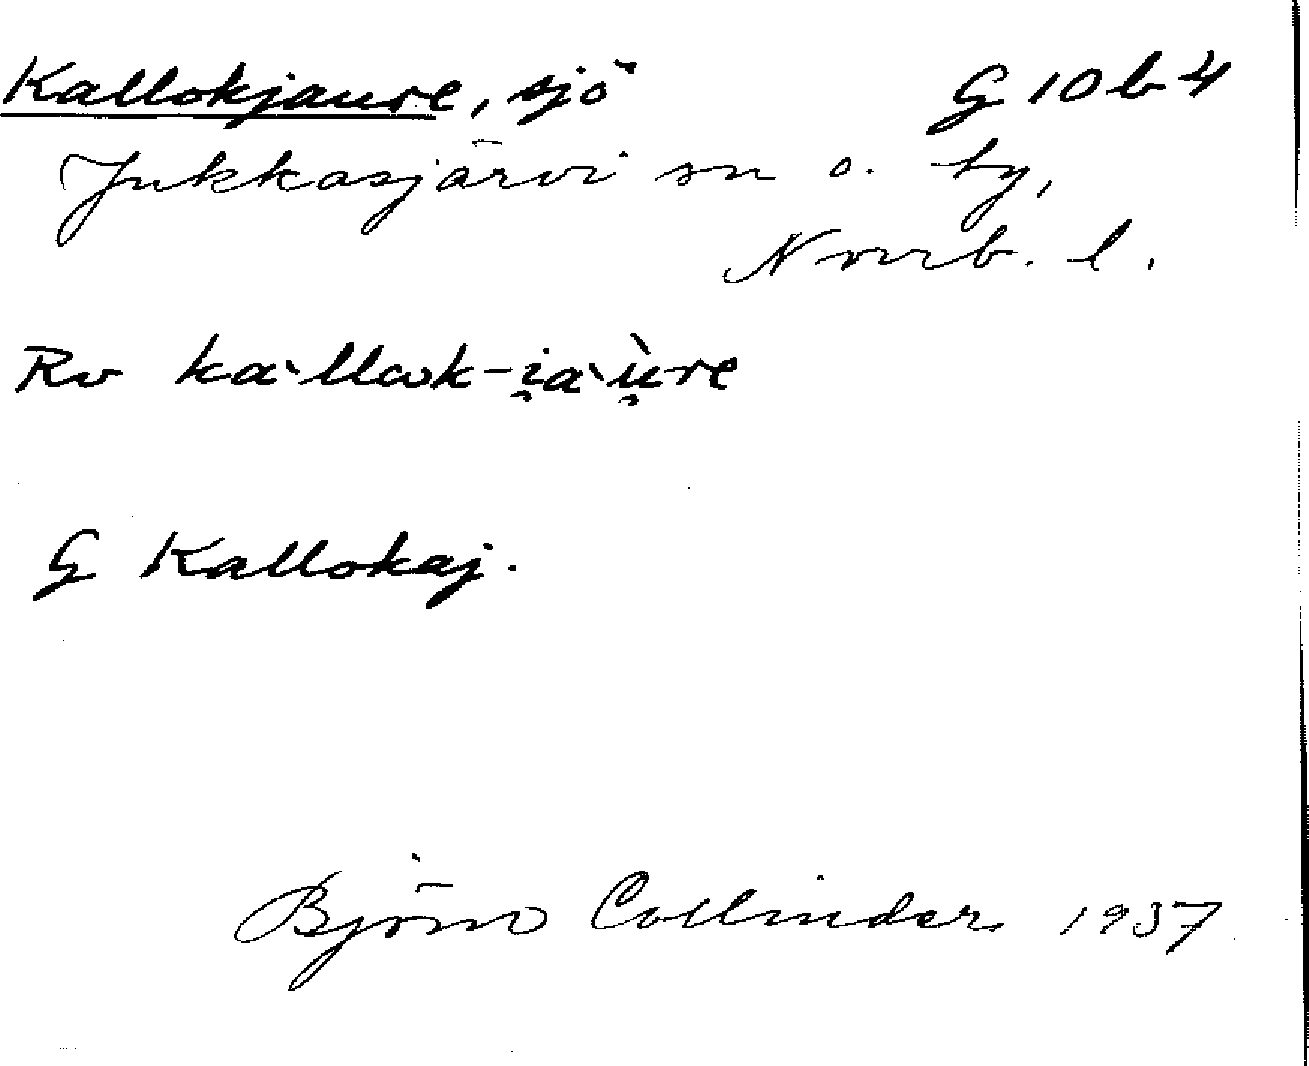 Kallokjaure, sjö G 10 b 4
Jukkasjärvi sn o. by,
Norrb. l.
Rv ka`llok-i̯a`ù̯re
G Kallokaj.
Björn Collinder 1937